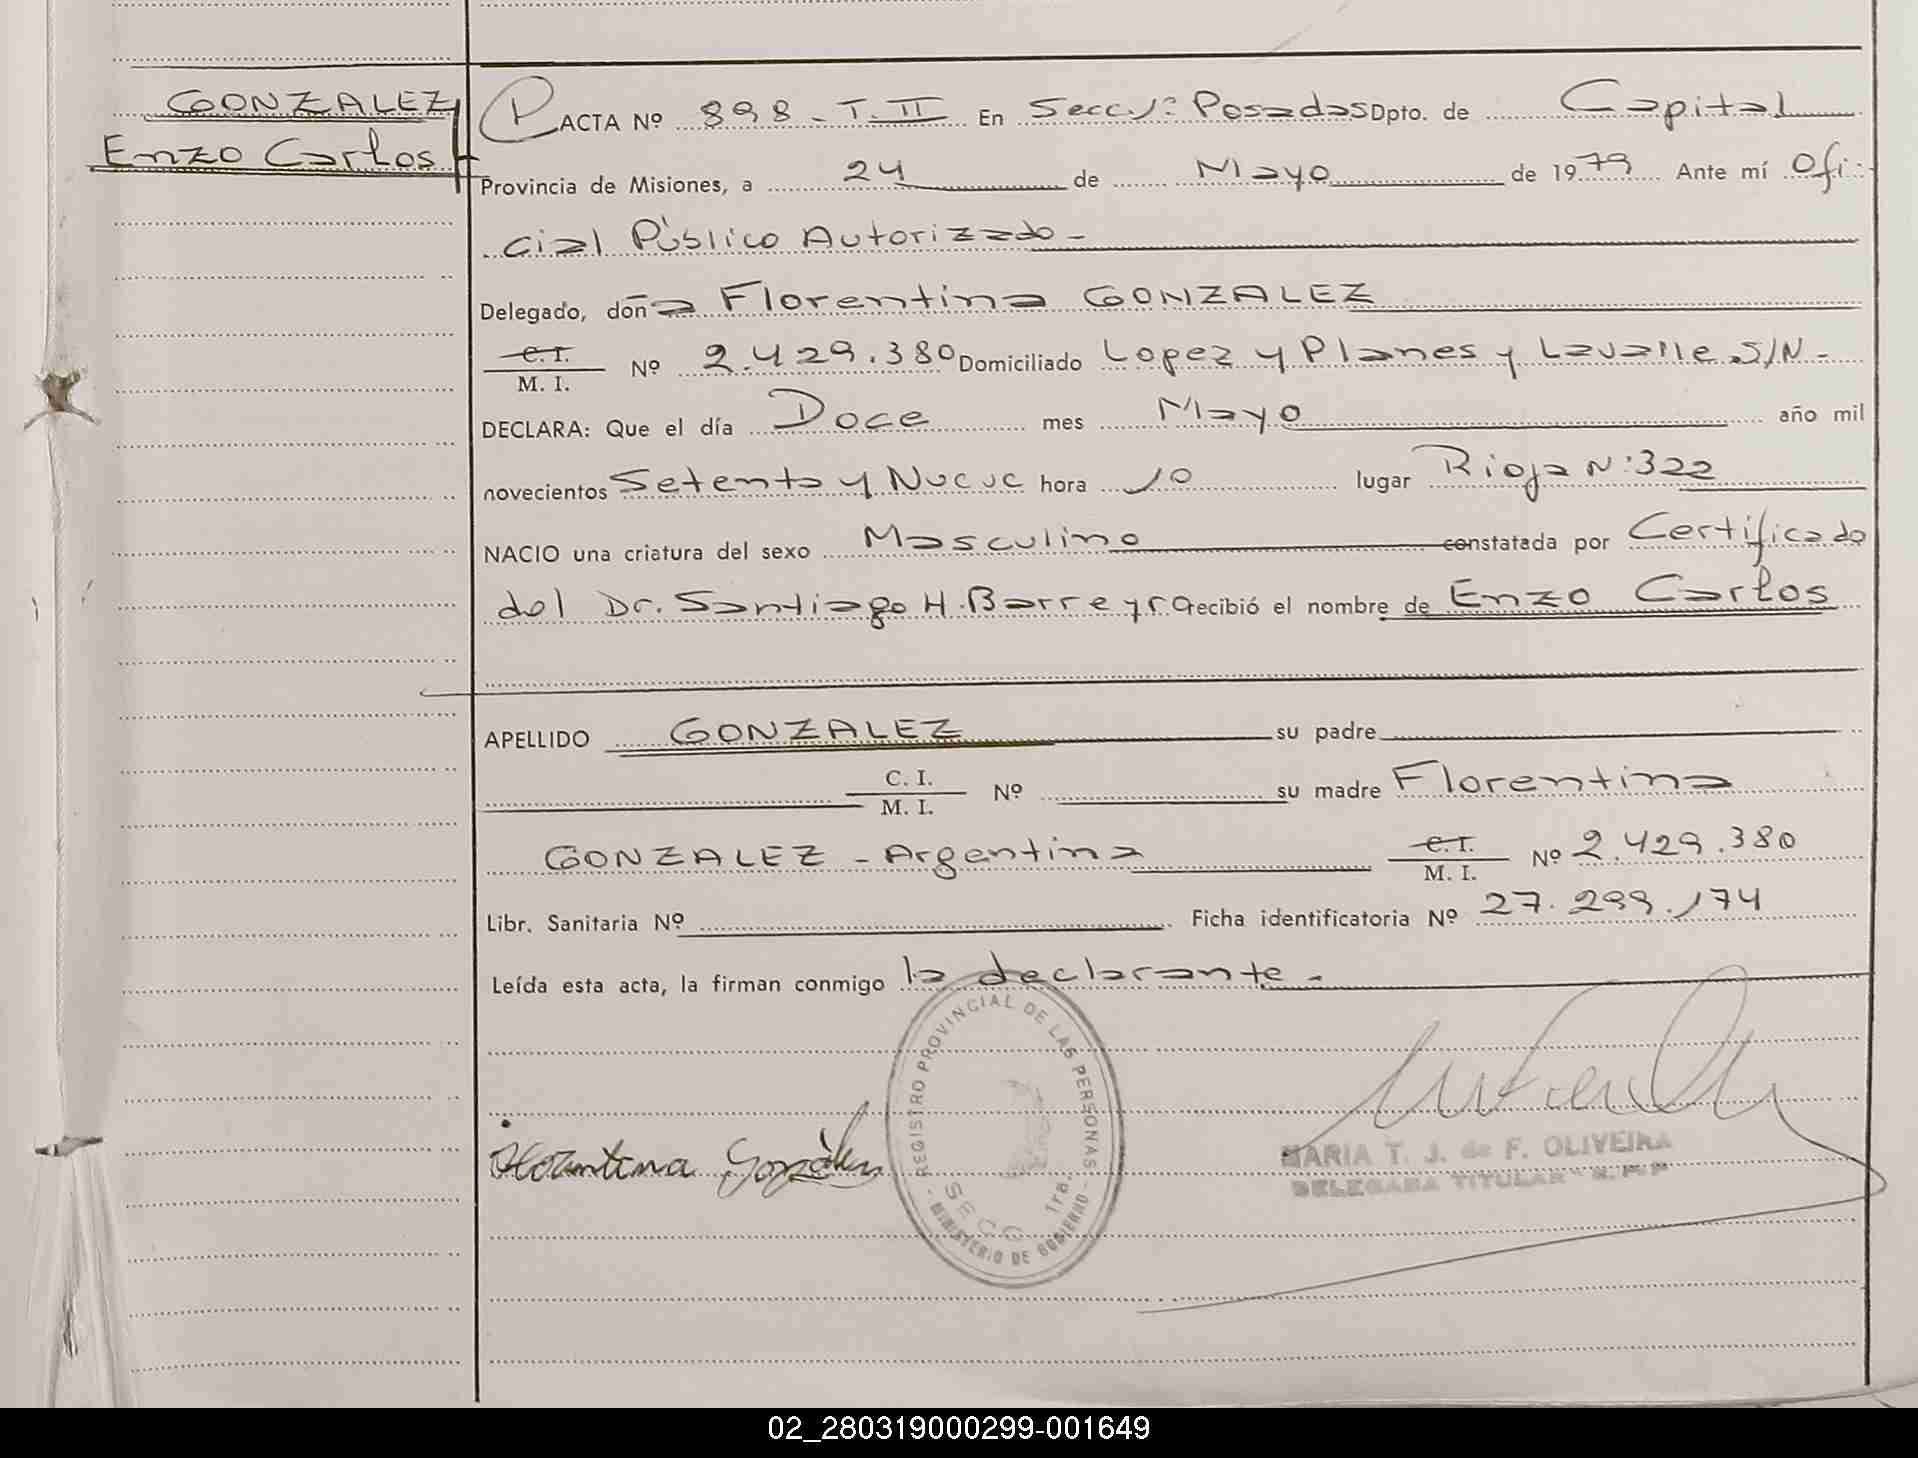 GONZALEZ
Enzo Carlos
ACTA Nº 898 - T. II En Secc 1ª Posadas Dpto. de Capital
Provincia de Misiones, a 24 de Mayo de 1979 Ante mí Ofi-
cial Público Autorizado -
Delegado, doña Florentina GONZALEZ
C. I.
M. I. Nº 2.429.380 Domiciliado Lopez y Planes y Lavalle S/N -
DECLARA: Que el día Doce mes Mayo año mil
novecientos Setenta y Nueve hora 10 lugar Rioja Nº 322
NACIO una criatura del sexo Masculino constatada por Certificado
del Dr. Santiago H. Barreyro recibió el nombre de Enzo Carlos
APELLIDO GONZALEZ su padre
C. I.
M. I. Nº su madre Florentina
GONZALEZ - Argentina C. I.
M. I. Nº 2.429.380
Libr. Sanitaria Nº Ficha identificatoria Nº 27.299.174
Leída esta acta, la firman conmigo la declarante -
REGISTRO PROVINCIAL DE LAS PERSONAS
SECC 1ra.
- MINISTERIO DE GOBIERNO -
Florentina González
MARIA T. J. de F. OLIVEIRA
DELEGADA TITULAR
02_280319000299-001649